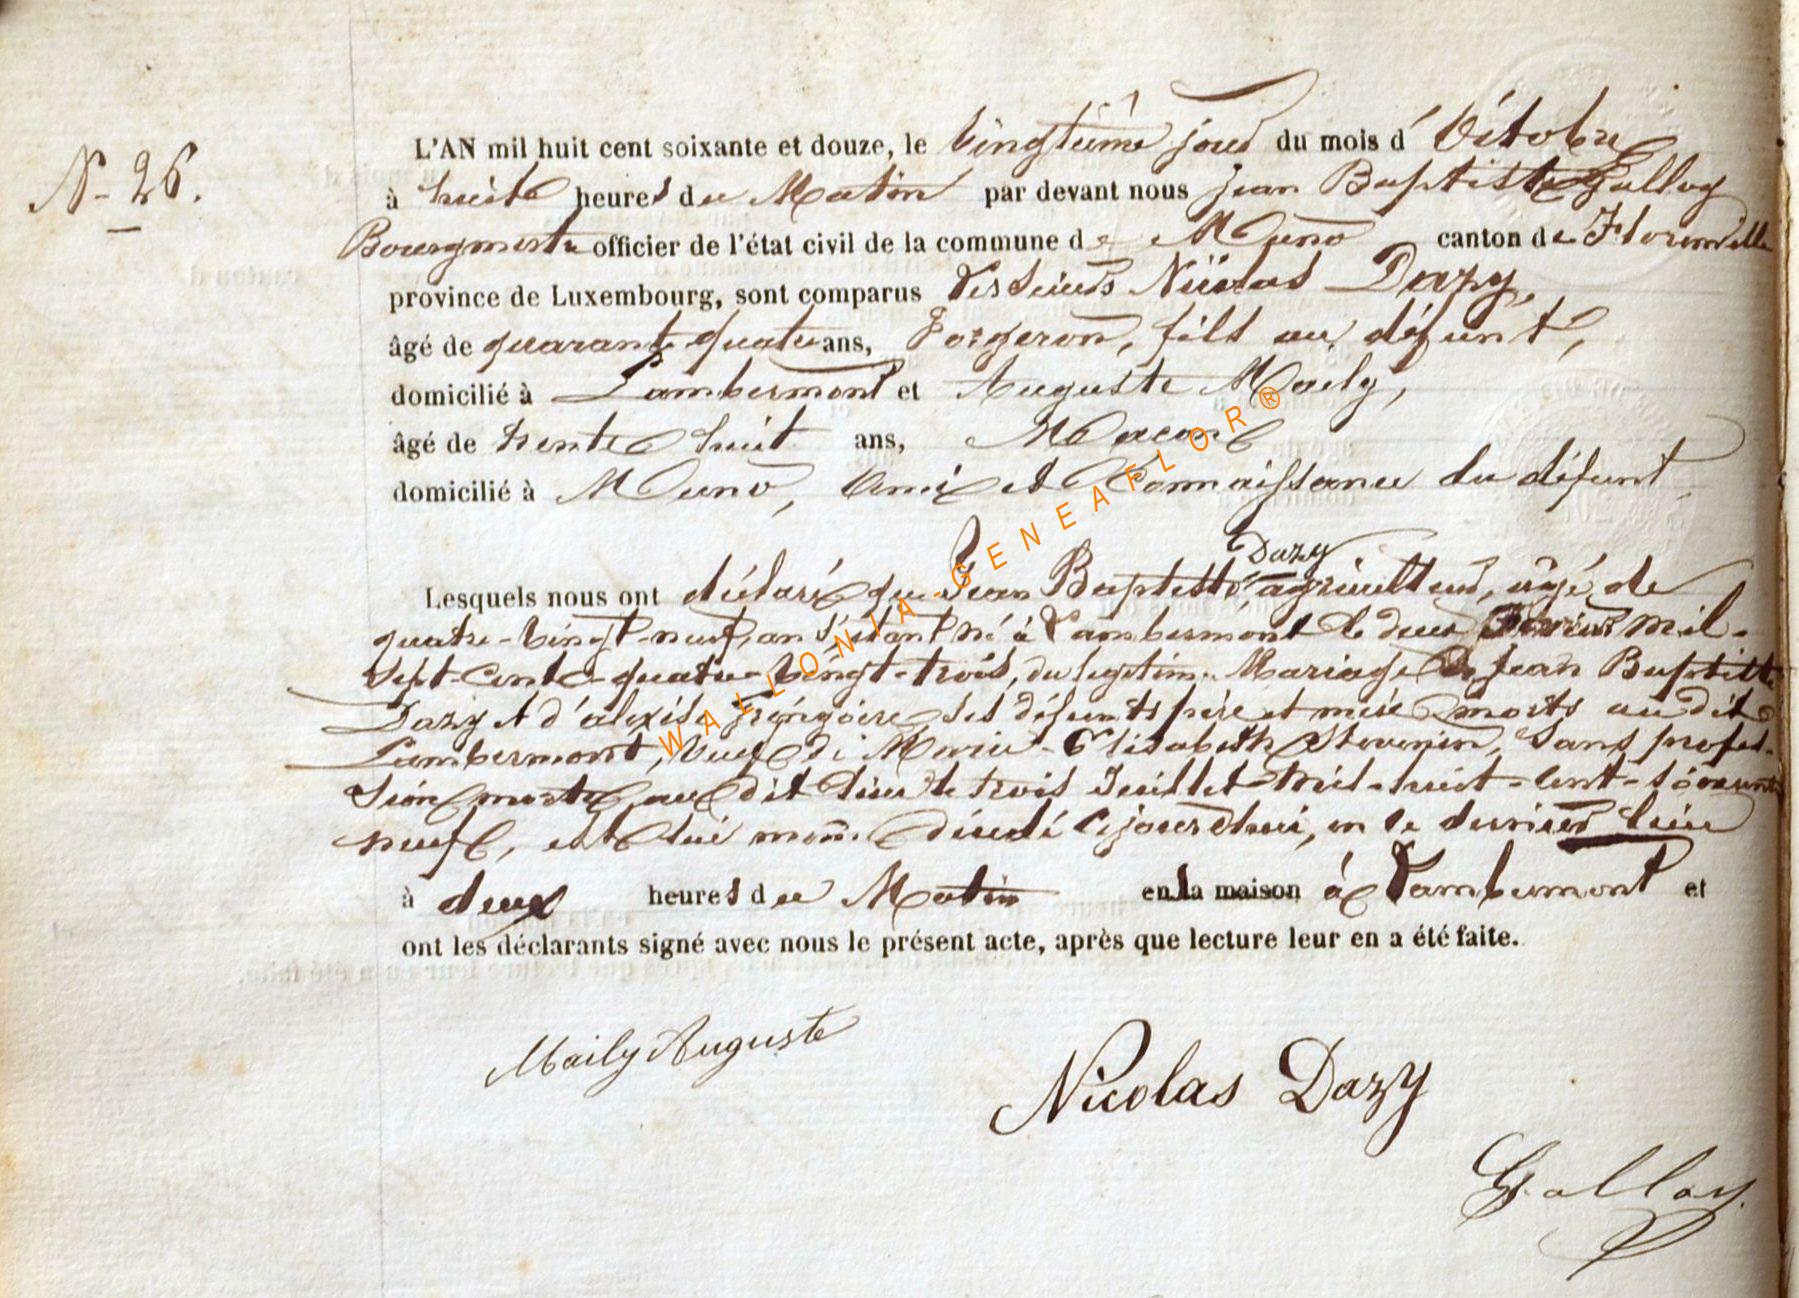 N- 26.
L'AN mil huit cent soixante et douze, le vingtième jour du mois d' Octobre
à huit heures du Matin par devant nous Jean Baptiste Galloy
Bourgmestre officier de l'état civil de la commune de Muno canton de Florenville
province de Luxembourg, sont comparus les sieurs Nicolas Dazy,
âgé de quarante-quatre ans, Forgeron, fils au défunt,
domicilié à Lambermont et Auguste Maily,
âgé de trente huit ans, Macon
domicilié à Muno, Ami et Connaissance du défunt
Dazy
Lesquels nous ont déclaré que Jean Baptiste agriculteur, âgé de
quatre-vingt-neuf, an s'étant né à Lambermont le deux mil-
sept-cent-quatre-vingt-trois, du legitime Mariage de Jean Baptiste
Dazy et d'alexise ses défunts père et mère morts au dit
Lambermont, Veuf de Marie-Elisabeth Stevenin, Sans profes-
sion morte au dit lieu le trois Juillet mil-huit-cent-soixante
neuf, est lui même décédé cejourd'hui, en ce dernier lieu
à deux heures du Matin en sa maison à Lambermont et
ont les déclarants signé avec nous le présent acte, après que lecture leur en a été faite.
Maily Auguste
Nicolas Dazy
Galloy
WALLONIA-GENEAFLOR®